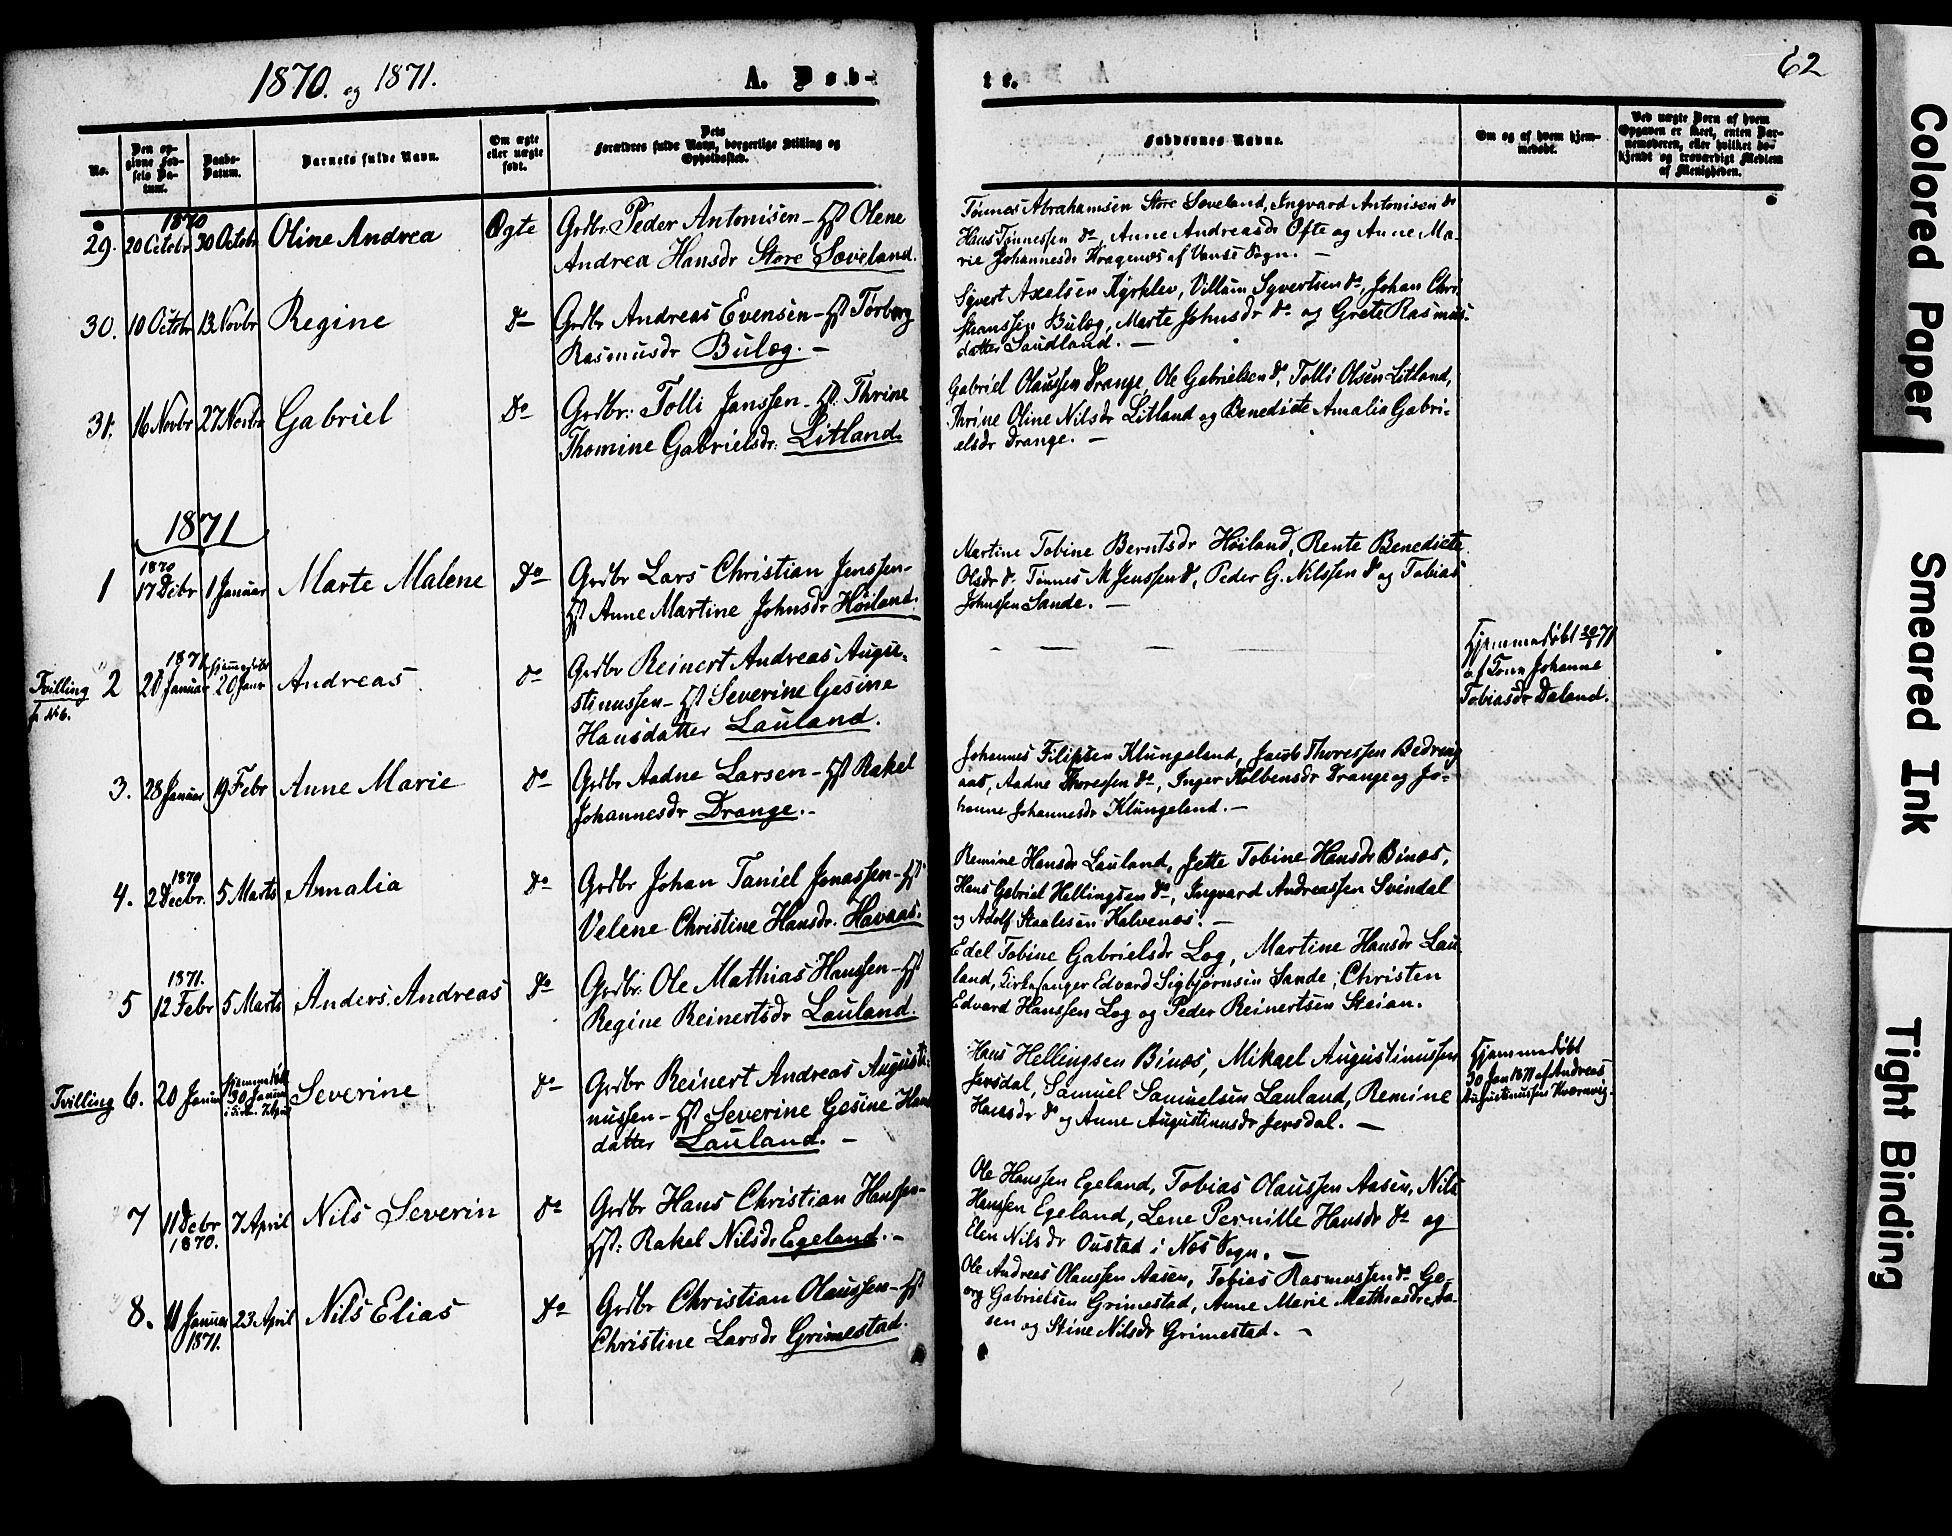 1870. og 1871.
A. Døb-
te.
62
No.
Den op-
givne Fød-
sels Da-
tum.
Daabs-
Datum.
Barnets fulde Navn.
Om ægte
eller uægte
født.
Dets
Forældres fulde Navn, borgerlige Stilling og
Opholdssted.
Faddernes Navne.
Om og af hvem hjem-
medøbt.
Ved uægte Børn af hvem
Opgaven er skeet, enten Bar-
nemoderen, eller hvilket be-
kjendt og troværdigt Medlem
af Menigheden.
1870
29. 20 Octobr 30 Octobr Oline Andrea Ægte Grdbr. Peder Antonisen – Hst Olene
Andrea Hansdr Store Sæveland.
Tønnes Abrahamsen Store Sæveland, Ingvard Antonisen do
Hans Tønnessen do, Anne Andreasdr Ofte og Anne Ma-
rie Johannesdr Kragenæs af Vanse Sogn. –
30. 10 Octobr 13 Novbr Regine do Grdbr Andreas Evensen – Hst Torborg
Rasmusdr Bulæg. –
Syvert Axelsen Kyrklev, Villum Syvertsen do, Johan Chri-
stianssen Bulæg, Marte Johnsdr do og Grete Rasmus-
datter Saudland. –
31. 16 Novbr 27 Novbr Gabriel Do Grdbr: Tolli Janssen – Hst. Thrine
Thomine Gabrielsdr. Litland.
Gabriel Olaussen Drange, Ole Gabrielsen do, Tolli Olsen Litland,
Thrine Oline Nilsdr Litland og Benedicte Amalia Gabri-
elsdr Drange. –
1871
1870
1 17 Debr 1 Januar Marte Malene Do Grdbr Lars Christian Jenssen –
Hst Anne Martine Johnsdr Høiland.
Martine Tobine Berntsdr Høiland, Rente Benedicte
Olsdr do Tønnes M Jenssen do, Peder G. Nilssen do og Tobias
Johnssen Sande. –
1871 Hjemmedøbt
Tvilling 2 20 Januar 20 Janr Andreas do Grdbr Reinert Andreas Augu-
fr No 6.
stinussen – Hst Severine Gesine
Hansdatter Lauland.
– – – –
Hjemmedøbt 20/1 71
af Tone Johanne
Tobiasdr Daland.
3. 28 Januar 19 Febr Anne Marie do Grdbr Aadne Larsen – Hst Rakel
Johannesdr Drange. –
Johannes Filipsen Klungeland, Jacob Thoressen Bedrug
aas, Aadne Thoressen do, Inger Halbensdr Drange og Jo-
hanne Johannesdr Klungeland. –
1870
4. 2 Decbr. 5 Marts Amalia do Grdbr Johan Taniel Jonassen – Hst
Velene Christine Hansdr. Havaas.
Remine Hansdr Lauland, Jette Tobine Hansdr Binæs,
Hans Gabriel Hellingsen do, Ingvard Andreassen Svindal
og Adolf Staalesen Kalvenæs. –
1871.
5 12 Febr 5 Marts Anders. Andreas do Grdbr. Ole Mathias Hanssen – Hst
Regine Reinertsdr Lauland.
Edel Tobine Gabrielsdr Log, Martine Hansdr Lau
land, Kirkesanger Edvard Sigbjørnsen Sande, Christen
Edvard Hanssen Log og Peder Reinertsen Steian.
Tvilling 6. 20 Januar Hjemmedøbt Severine do Grdbr Reinert Andreas Augusti-
30 Januar
nussen – Hst Severine Gesine Hans
datter Lauland. –
Hans Hellingsen Binæs, Mikael Augustinussen
Jersdal, Samuel Samuelsen Lauland, Remine
Hansdr do og Anne Augustinusdr Jersdal. –
Hjemmedøbt
30 Jan 1871 af Andreas
Augustinussen Kvernvig.
7 11 Debr 7 April Nils Severin do Grdbr Hans Christian Hanssen –
1870.
Hst: Rakel Nilsdr Egeland. –
Ole Hanssen Egeland, Tobias Olaussen Aasen, Nils
Hanssen Egeland, Lene Pernille Hansdr do og
Elen Nilsdr Oustad i Næs Sogn. –
8. 11 Januar 23 April Nils Elias Do Grdbr Christian Olaussen – Hst
1871.
Christine Larsdr Grimestad.
Ole Andreas Olaussen Aasen, Tobias Rasmussen do Ge-
org Gabrielsen Grimestad, Anne Marie Mathiasdr Aa-
sen og Stine Nilsdr Grimestad. –
Colored Paper
Smeared Ink
Tight Binding